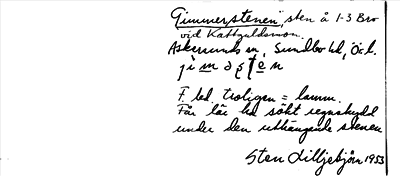 "Gimmerstenen", sten å 1-3 Bro
vid Kattguldsmon.
Askersunds sn, Sundbo hd, Ög l.
F. led. troligen = lamm.
Får lär ha sökt regnskydd
under den uthängande stenen
Sten Lilljebjörn 1953